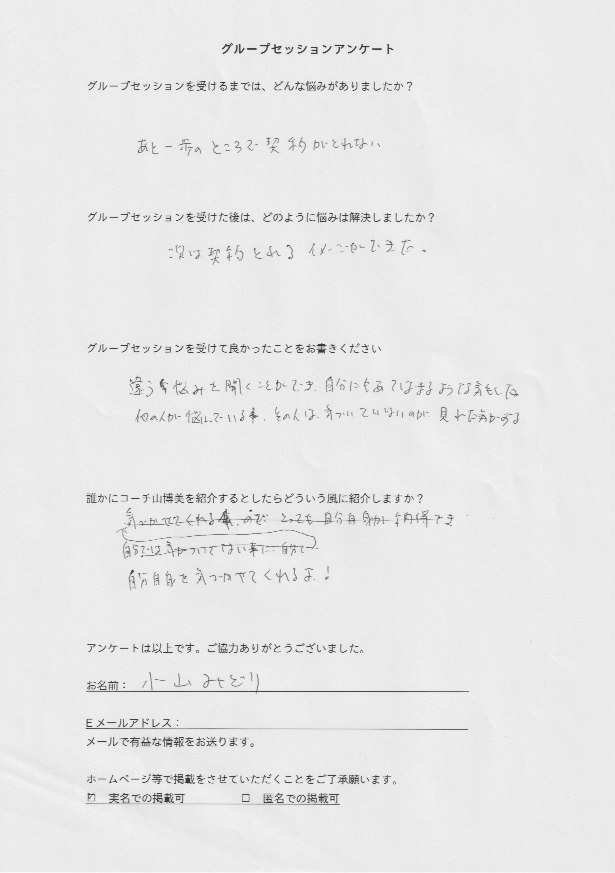 グループセッションアンケート
グループセッションを受けるまでは、どんな悩みがありましたか？
あと一歩のところで契約がとれない
グループセッションを受けた後は、どのように悩みは解決しましたか？
次は契約とれるイメージができた。
グループセッションを受けて良かったことをお書きください
違う悩みを聞くことができ、自分にもあてはまるような気もした
他の人が悩んでいる事、その人は、気づいていないのが見れた気がする
誰かにコーチ山博美を紹介するとしたらどういう風に紹介しますか？
気づかせてくれる とっても自分自身が納得でき
自分では気がついてない事に、自分で
自分自身を気づかせてくれるよ！
アンケートは以上です。ご協力ありがとうございました。
お名前： 小山みどり
Eメールアドレス：
メールで有益な情報をお送ります。
ホームページ等で掲載をさせていただくことをご了承願います。
☑ 実名での掲載可 □ 匿名での掲載可